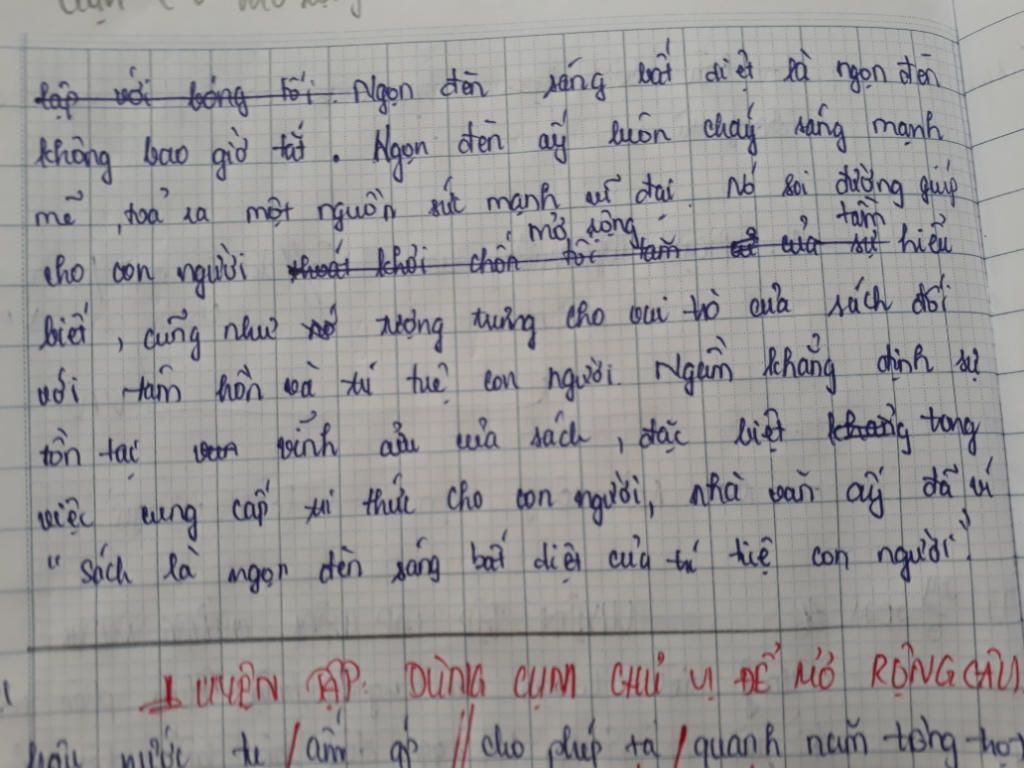 lập với bóng tối. Ngọn đèn sáng bất diệt là ngọn đèn
không bao giờ tắt. Ngọn đèn ấy luôn cháy sáng mạnh
mẽ, toả ra một nguồn sức mạnh vĩ đại. Nó soi đường giúp
mở rộng tầm
cho con người thoát khỏi chốn tối tăm của sự hiểu
biết, cũng như nó tượng trưng cho vai trò của sách đối
với tâm hồn và trí tuệ con người. Ngầm khẳng định sự
tồn tại vĩnh cửu của sách, đặc biệt trong
việc cung cấp tri thức cho con người, nhà văn ấy đã ví
"Sách là ngọn đèn sáng bất diệt của trí tiệ con người".
LUYỆN TẬP: DÙNG CỤM CHỦ VỊ ĐỂ MỞ RỘNG CÂU
nước ta / ấm áp // cho phép ta / quanh năm trồng